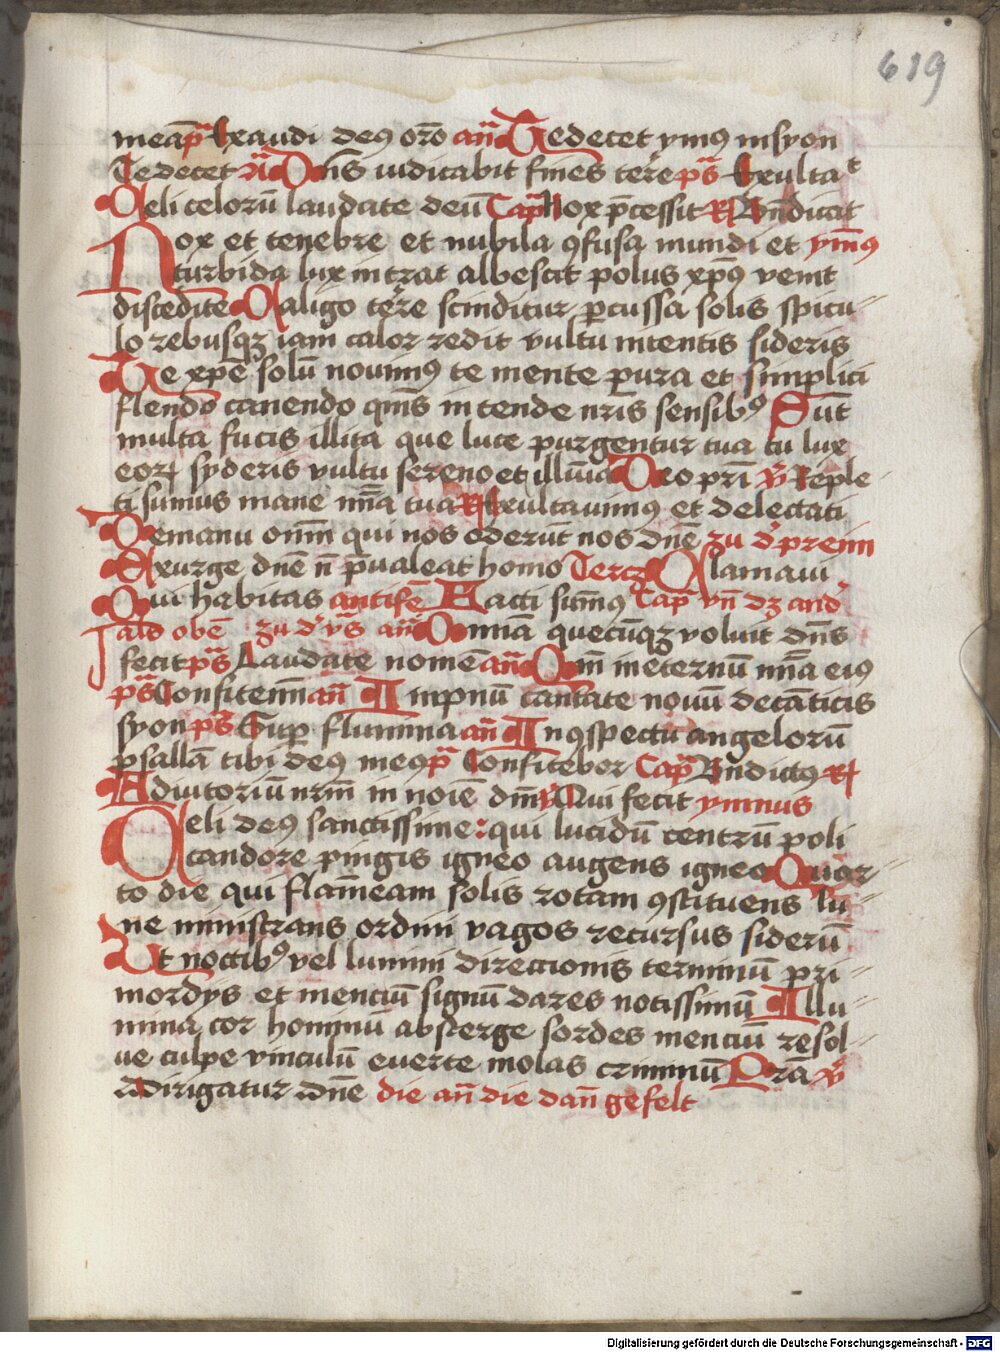 619
meā pˢ Exaudi deꝰ orō an̄ Te decet ymnꝰ in syon
Te decet an̄ Dn̄s iudicabit fines terre pˢ Exultaᵗ
Celi celorū laudate deū Cap̄ Nox p̄cessit R Bn̄dicat
Nox et tenebre et nubila ꝯfusa mundi et ymꝰ
turbida lux intrat albescit polus xpꝰ venit
discedite Caligo terre scinditur percussa solis spicu
lo rebusqꝫ iam calor redit vultu nitentis sideris
Te xp̄e solū novimꝰ te mente pura et simplici
flendo canendo qms intende nr̄is sensibꝰ Sūt
multa fucis illita que luce purgentur tua tu lux
eoꝝ syderis vultu sereno et illūīa Deo pr̄i v̄ Reple
ti sumus mane mīa tua R Exultavimꝰ et delectati
De manu om̄m qui nos oderūt nos dn̄e zu d' preim
Exurge dn̄e n̄ p̄ualeat homo Tercꝫ Clamaui
Qui habitas antife Facti sumꝰ Cap̄ vn̄ dꝫ and'
als obē zu d' vˢ an̄ Omnia quecūqꝫ voluit dn̄s
fecit pˢ Laudate nomē an̄ Qm̄ in eternū mīa eiꝰ
pˢ Confitemī an̄ Impnū cantate nobis de cāticis
syon pˢ Super flumina an̄ In ꝯspectu angelorū
psallā tibi deꝰ meꝰ pˢ Confitebor Cap̄ Bn̄dictꝰ R
Adiutoriū nr̄m in noīe dn̄i v̄ Qui fecit ymnus
Celi deꝰ sanctissime : qui lucidū centrū poli
candore pingis igneo augens igneo Quar
to die qui flam̄eam solis rotam ꝯstituens lu
ne ministrans ordini vagos recursus siderū
Ut noctibꝰ vel lumini directionis terminū pri
mordys et mencium signū dares notissimū Illu
mina cor hominū absterge sordes mencium resol
ue culpe vinculū euerte molas criminū Pr̄sta v̄
Dirigatur dn̄e die an̄ die dan̄ gefelt
Digitalisierung gefördert durch die Deutsche Forschungsgemeinschaft - DFG